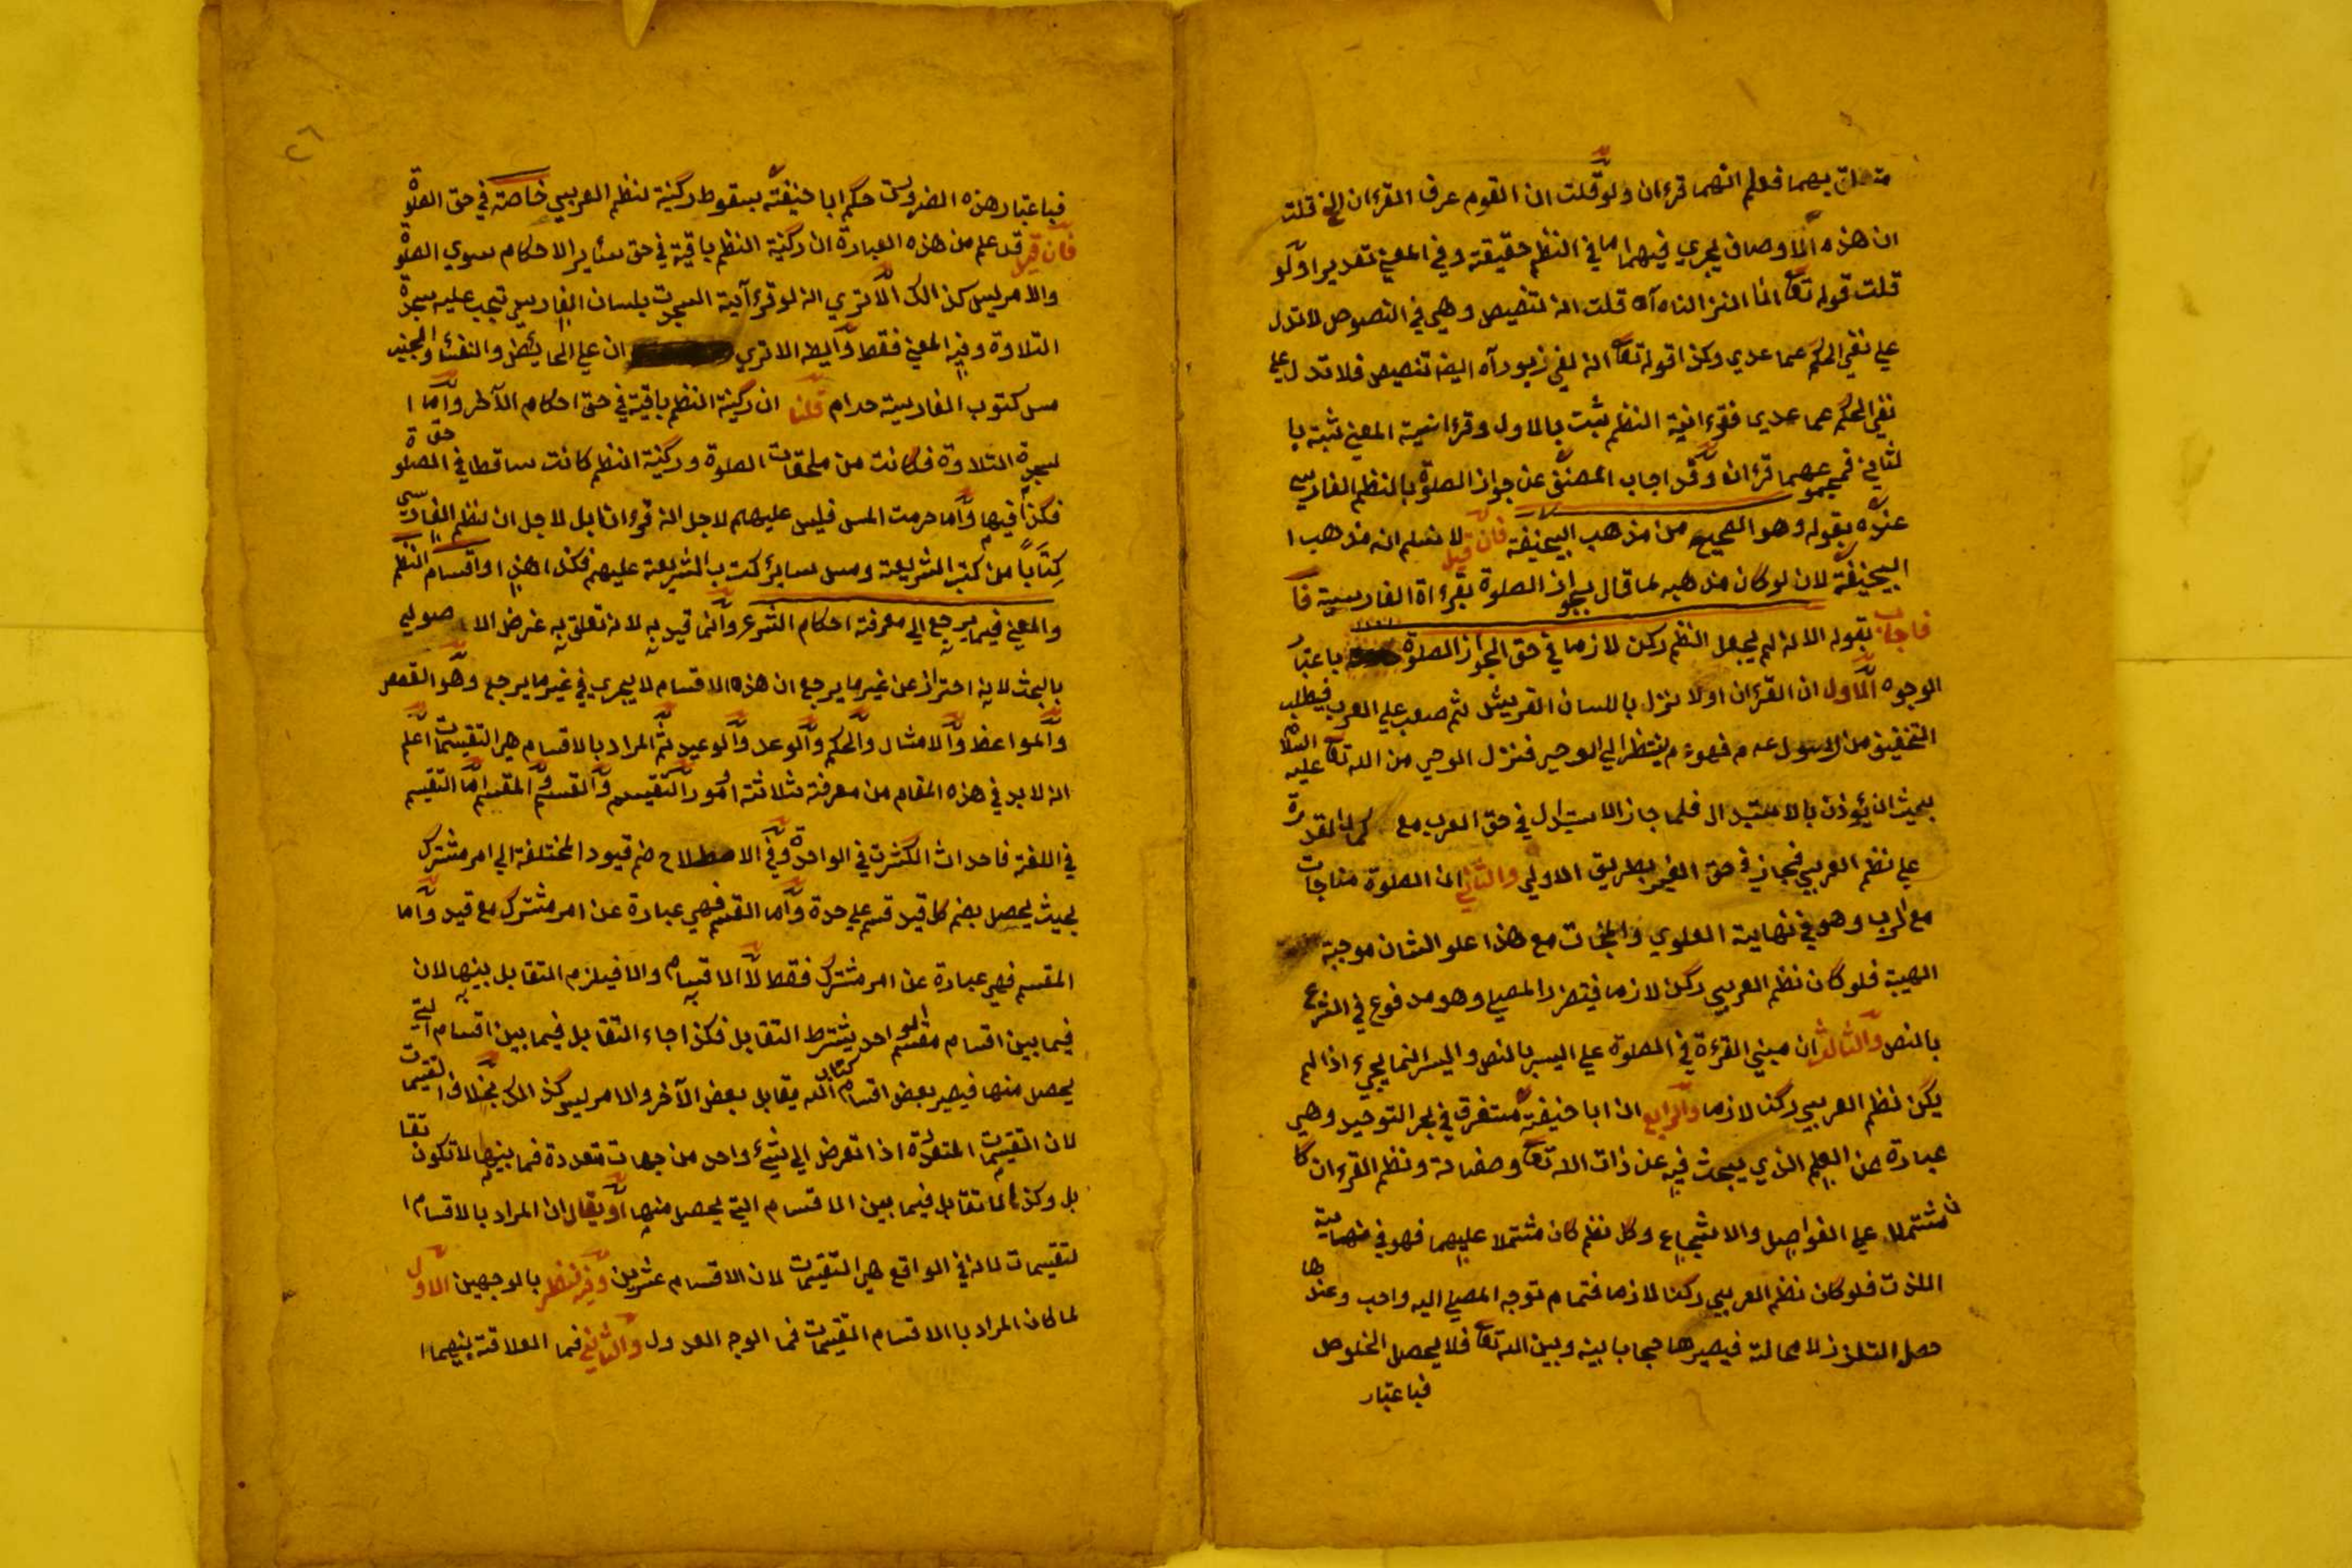 متعلق بهما فعلم انهما قرءان ولو قلت ان القوم عرف القرءان الخ قلت
ان هذه الاوصاف يجري فيهما اما في النظم حقيقة وفي المعني تقديرا ولو
قلت قوله تعا انا انزلناه آه قلت انه تنصيص وهي في النصوص لا تدل
علي نفي الحكم عما عدي وكذا قوله تعا انه لفي زبور آه ايضه تنصيص فلا تدل علي
نفي الحكم عما عديها فقرءانية النظم ثبت بالاول وقرءانية المعني ثبته با
لثاني فمجموعهما قرءان وقد اجاب المصنف عن جواز الصلوة بالنظم الفارسي
عنده بقوله وهو الصحيح من مذهب ابيحنيفة فان قيل لا نسلم انه مذهب ا
ابيحنيفة لان لو كان مذهبه لما قال بجواز الصلوة بقرءاة الفارسية فا
فاجاب بقوله الا انه لم يجعل النظم ركن لازما في حق الجواز الصلوة باعتبار
الوجوه الاول ان القرءان اولا نزل باللسان القريش ثم صعب علي العرب فيطلب
التخفيف من الرسول عم فهو ءم ينتظر الي الوحي فنزل الوحي من الله تعا عليه السلام
بحيث ان يؤذن بالاستبدال فلما جاز الاستبدل في حق العرب مع كمال القدرة
علي نظم العربي فجاز في حق الغير بطريق الاولي والثاني ان الصلوة مناجات
مع الرب وهو في نهاية العلوي والنجات مع هذا علو الشان موجبة
الهيبة فلو كان نظم العربي ركن لازما فيتضر المصلي وهو مدفوع في الشرع
بالنص والثالث ان مبني القرءة في الصلوة علي اليسر بالنص واليسر انما يجيء اذا لم
يكن نظم العربي ركنا لازما والرابع ان ابا حنيفة مستغرق في بحر التوحيد وهي
عبارة عن العلم الذي يبحث فيه عن ذات الله تعا وصفاته ونظم القرءان كا
ن مشتملا علي الفواصل والاشجاع وكل نظم كان مشتملا عليهما فهو في نهاية
اللذت فلو كان نظم العربي ركنا لازما فتمام توجه المصلي اليه واجب وعندها
حصل التلذذ لا محالة فيصيرها حجابا بينه وبين الله تعا فلا يحصل الخلوص
فباعتبار
٢٦
فباعتبار هذه الضرورت حكم ابا حنيفة بسقوط ركنية لنظم العربي خاصة في حق الصلوة
فان قيل قد علم من هذه العبارة ان ركنية النظم باقية في حق سائر الاحكام سوي الصلوة
والامر ليس كذالك الا تري انه لو قرء آية السجدت بلسان الفارسي تجب عليه سجدة
التلاوة وفيه المعني فقط وايضه الا تري ان علي الحائض والنفساء والجنب
مس كتوب الفارسية حرام قلنا ان ركنية النظم باقية في حق احكام الآخر واما ا
لسجدة التلاوة فكانت من ملحقات الصلوة وركنية النظم كانت ساقطا في حق الصلوة
فكذا فيها واما حرمت المس فليس عليهم لاجل انه قرءانا بل لاجل ان نظم الفارسي
كتابا من كتب الشريعة ومس سائر كتب الشريعة عليهم فكذا هذا واقسام النظم
والمعني فيما يرجع الي معرفة احكام الشرع وانما قيد به لانه تعلق به غرض الاصولي
بالبحث لانه احتراز عن غير ما يرجع ان هذه الاقسام لا يجري في غير ما يرجع وهو القصص
والمواعظ والامثال والحكم والوعد والوعيد ثم المراد بالاقسام هي التقسيمات اعلم
انه لا بد في هذه المقام من معرفة ثلاثة امور التقيسم والقسم والمقسم اما التقيسم
في اللغة فاحداث الكثرت في الواحدة وفي الاصطلاح ضم قيود المختلفة الي امر مشترك
بحيث يحصل بضم كل قيد قسم علي حدة واما القسم فهي عبارة عن امر مشترك مع قيد واما
المقسم فهي عبارة عن امر مشترك فقط لا الاقسام والا فيلزم التقابل بينها لان
فيما بين اقسام مقسم الواحد يشترط التقابل فكذا جاء التقابل فيما بين اقسام التي
يحصل منها فيصير بعض اقسام كتاب الله مقابل بعض الآخر والامر ليس كذالك بخلاف التقسيمات
لان التقسيمات المتعددة اذا تعرض الي شيء واحد من جهات متعددة فما بينها لا تكون تقا
بل وكذا لا تقابل فيما بين الاقسام التي يحصل منها او يقال ان المراد بالاقسام ا
لتقيسمات لانه في الواقع هي التقيسمات لان الاقسام عشرين وفيه نظر بالوجهين الاول
لما كان المراد بالاقسام التقيسمات فما الوجه العدول والثاني فما العلاقة بينهما